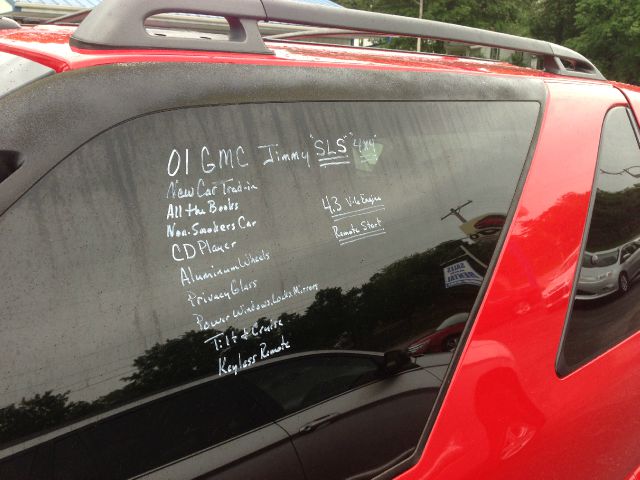 01 GMC Jimmy "SLS" "4x4"
New Car Trad-in
All the Books
Non-Smokers Car
CD Player
Aluminum Wheels
Privacy Glass
Power Windows, Locks, Mirrors
Tilt & Cruise
Keyless Remote
4.3 V-6 Engine
Remote Start